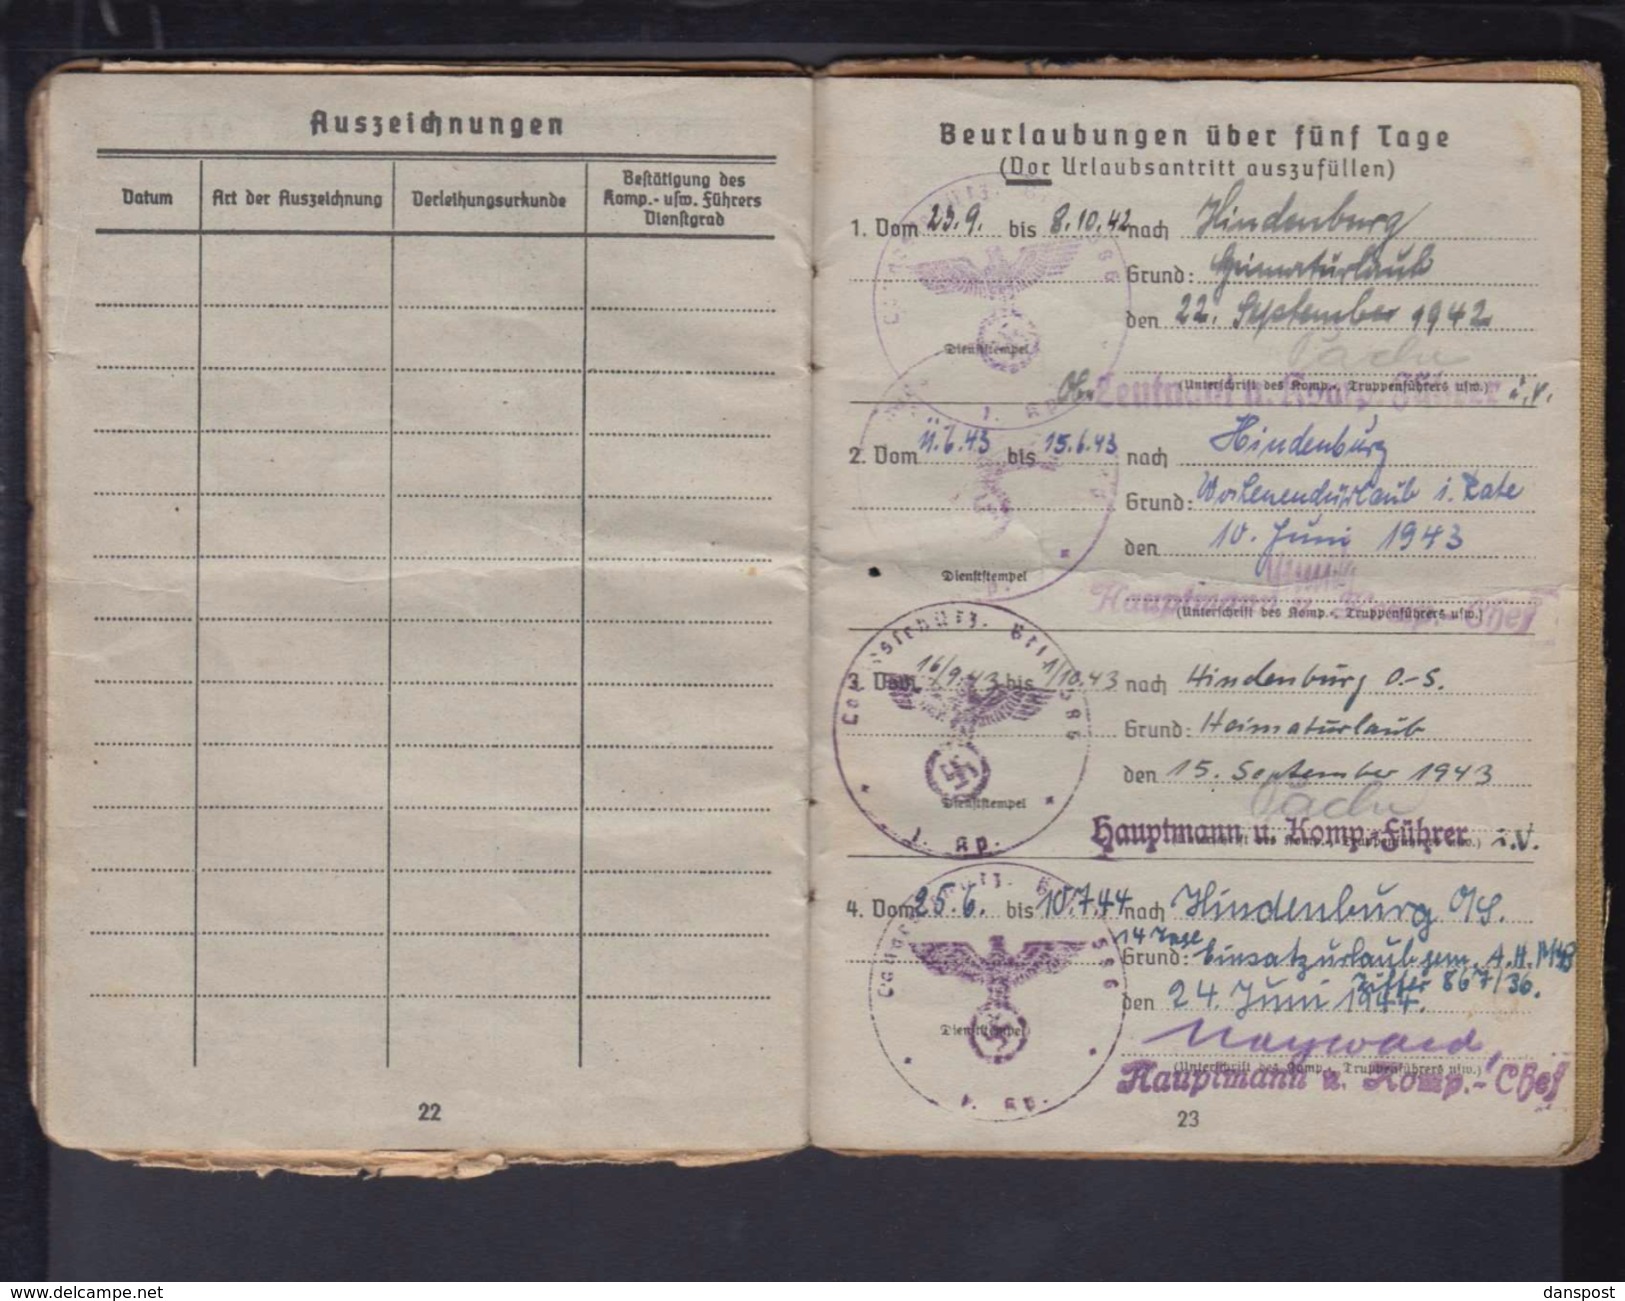 Auszeichnungen
Datum
Art der Auszeichnung
Verleihungsurkunde
Bestätigung des
Komp.- usw. Führers
Dienstgrad
22
Beurlaubungen über fünf Tage
(Vor Urlaubsantritt auszufüllen)
1. Vom 23.9. bis 8.10.42 nach Hindenburg
Grund: Heimaturlaub
den 22. September 1942
Dienststempel
(Unterschrift des Komp.-, Truppenführers usw.)
Ob. Leutnant u. Komp.-Führer i.V.
1. Kp.
2. Vom 11.6.43 bis 15.6.43 nach Hindenburg
Grund: Wochenendurlaub i. Rate
den 10. Juni 1943
Dienststempel
Hauptmann u. Komp.-Chef
(Unterschrift des Komp.-, Truppenführers usw.)
3. Vom 16/9.43 bis 1/10.43 nach Hindenburg O.-S.
Grund: Heimaturlaub
den 15. September 1943
Dienststempel
Hauptmann u. Komp.-Führer i.V.
1. Kp.
4. Vom 25.6. bis 10.7.44 nach Hindenburg O/S.
14 Tage
Grund: Einsatzurlaub gem. A.H.M. 43
Ziffer 867/36.
den 24. Juni 1944.
Dienststempel
(Unterschrift des Komp.-, Truppenführers usw.)
Hauptmann u. Komp.-Chef
1. Kp.
23
www.delcampe.net
danspost